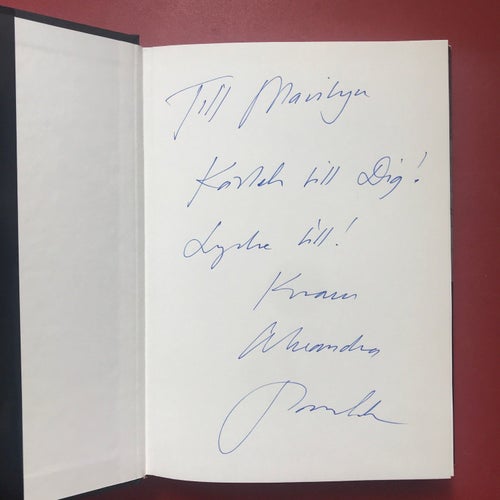 Till Marilyn
Kärlek till Dig!
Lycka till!
Kram
Alexandra